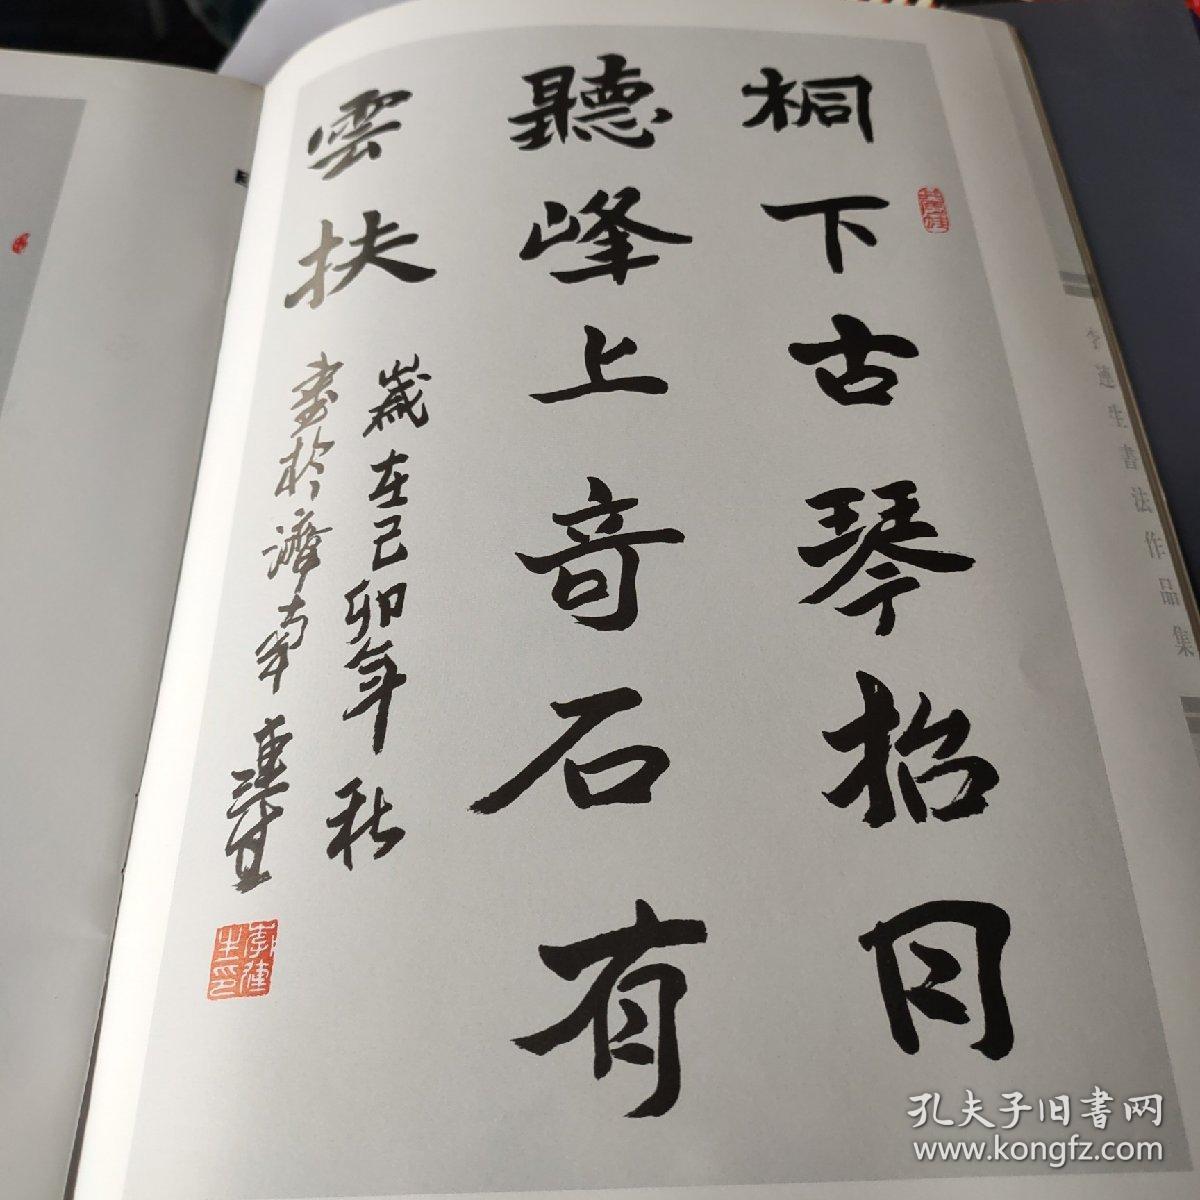 桐下古琴招月
聽峰上竒石有
雲扶
歲在己卯年秋
書於濟南連生
李連生印
李連生書法作品集
孔夫子旧书网
www.kongfz.com